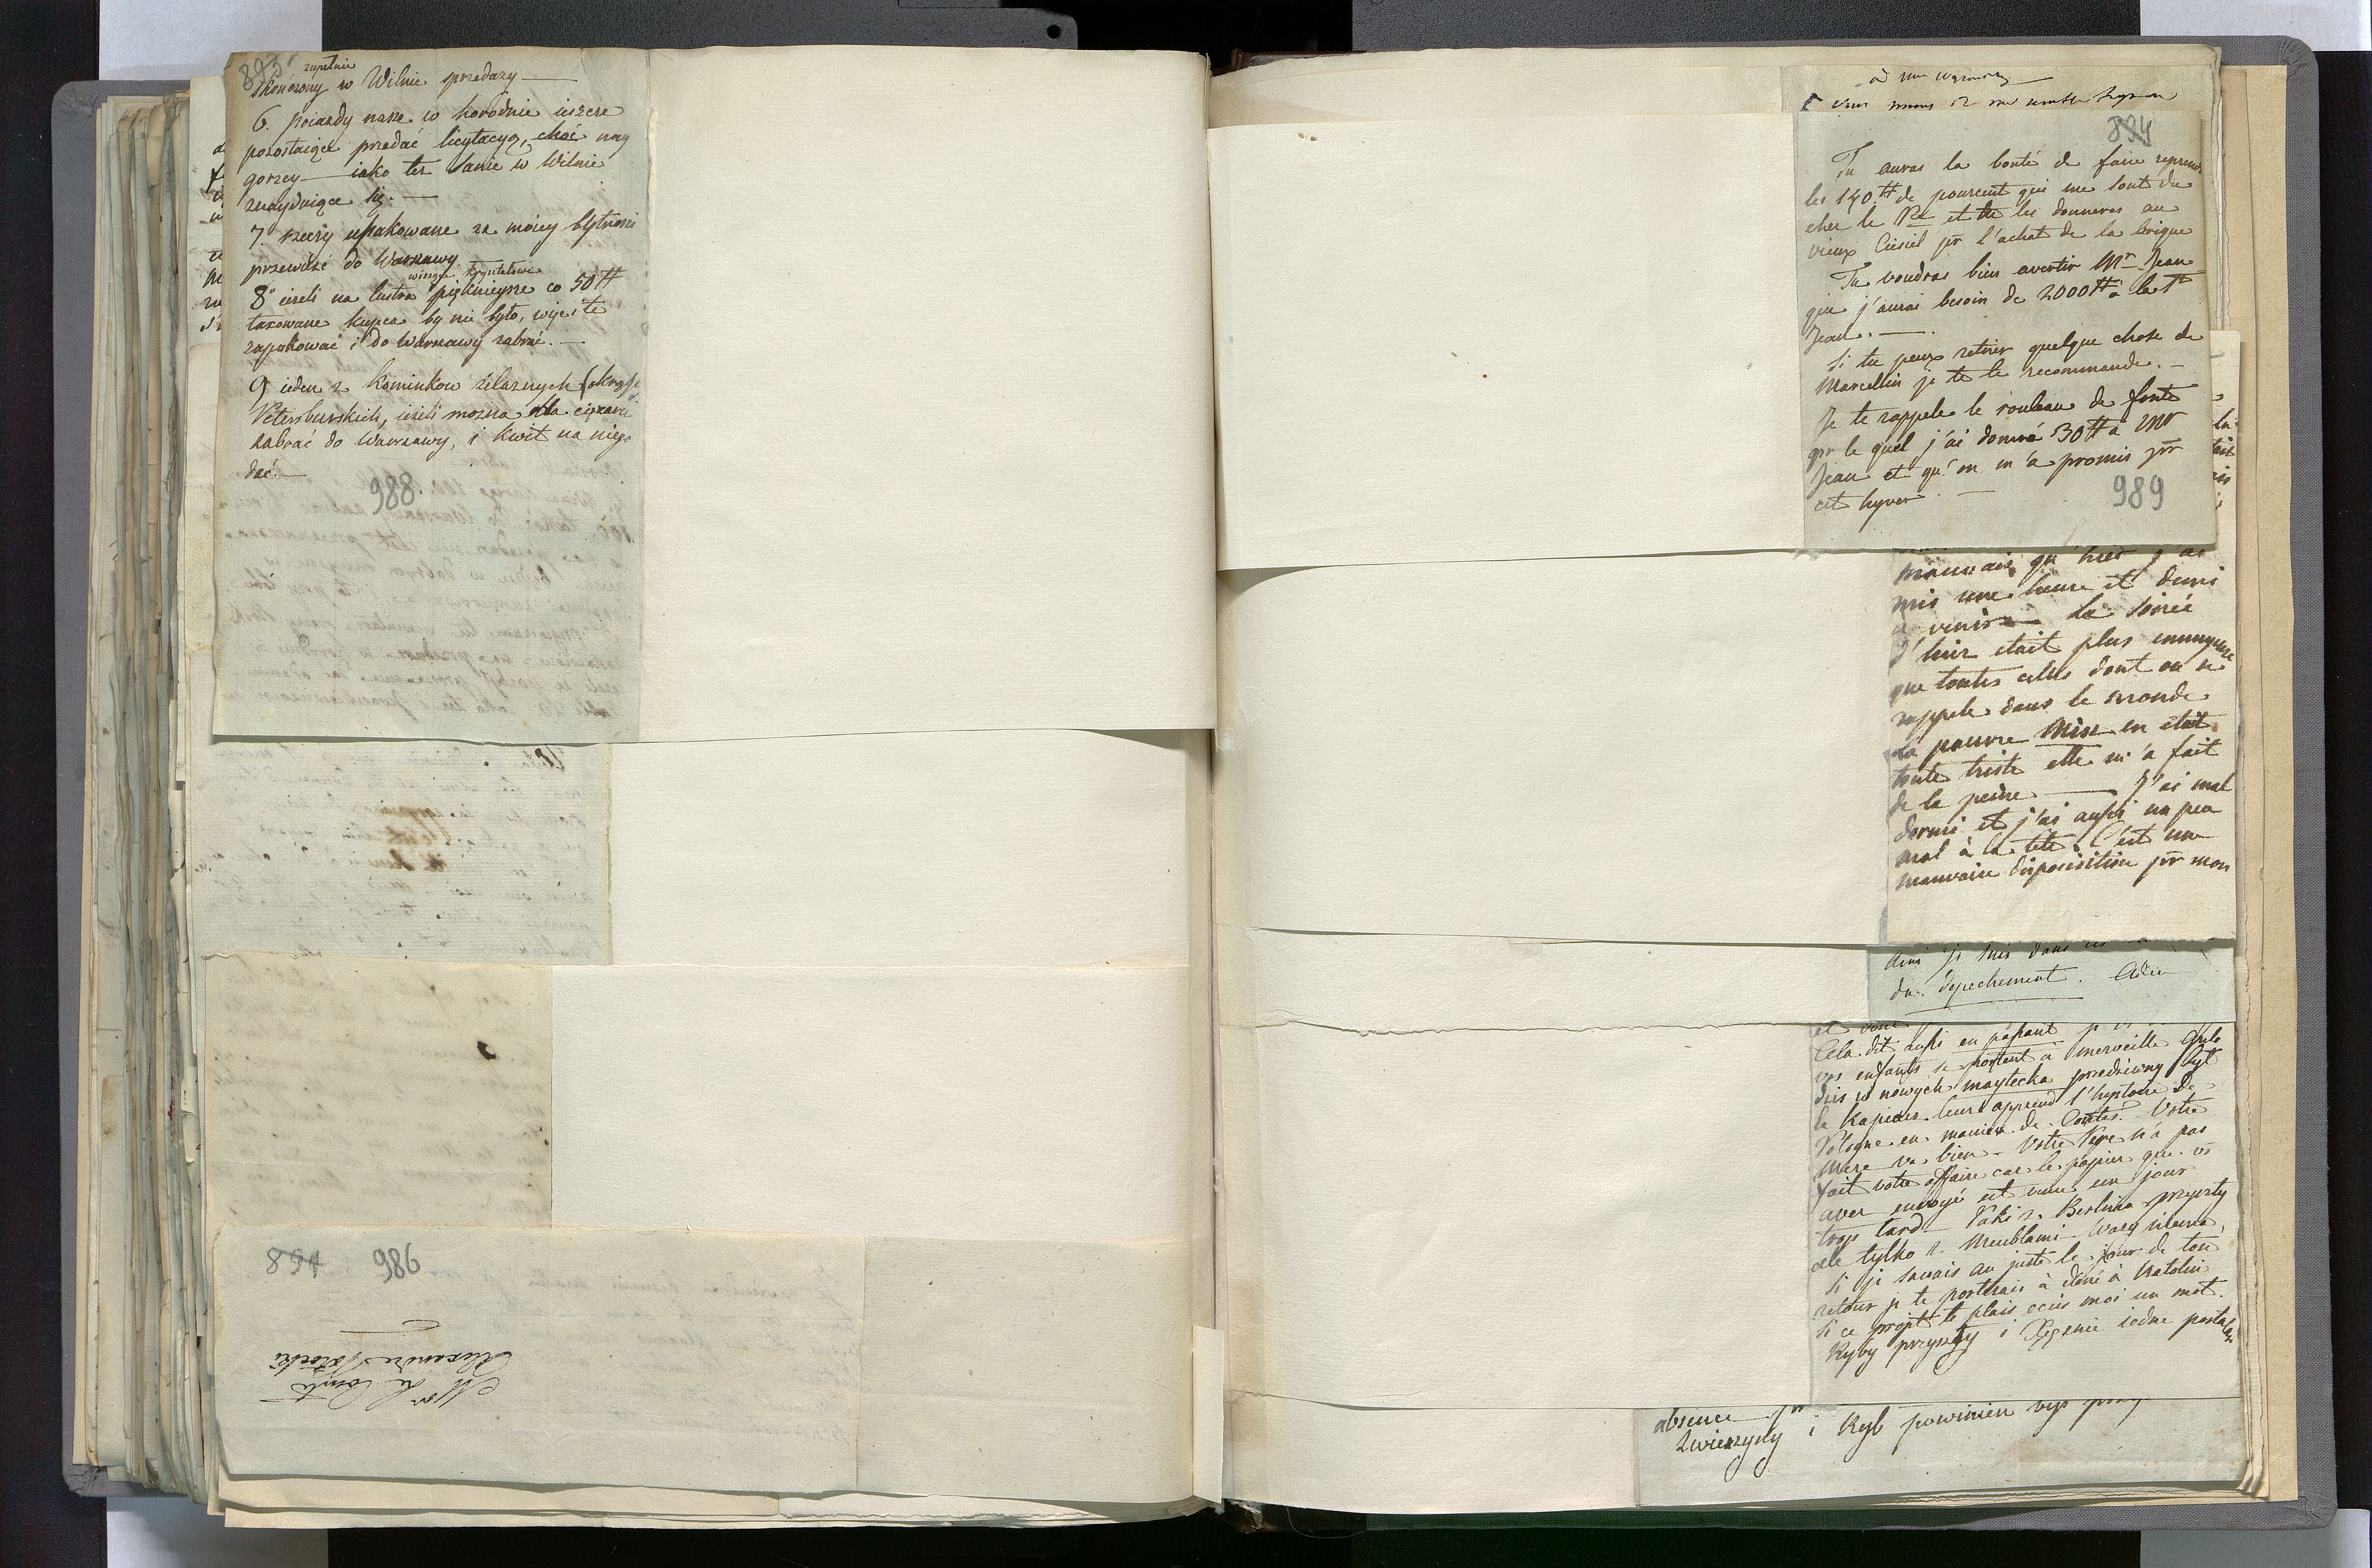 893
zupełnie
skończony w Wilnie sprzedaży —
6. pojazdy nasze w horodnie ieszcze
pozostaiące przedać licytacyą, choć nay
gorzey — iako też Sanie w Wilnie
znayduiące się. —
7. rzeczy upakowane za moiey bytności
przewieść do Warszawy.
wiszące krysztatowe
8° ieżeli na lustra pięknieysze co 50 #
taxowane kupca by nie było, więc i te
zapakować i do Warszawy zabrać. —
9 ieden z kominkow żelaznych (okrągły
Petersburskich, ieżeli można dla ciężaru
zabrać do Warszawy, i kwit na niego
dać. —
988
894 986
Mor Le Comte
Alexandre Potocki
894
Tu auras la bonté de faire reprendre
les 140 # de pourcent qui me sont du
chez le Pce et tu les donneras au
vieux Cieciel pr l'achat de la brique
Tu voudras bien avertir Mr Jean
que j'aurai besoin de 2000 # à la St
Jean. —
Si tu peux retirer quelque chose de
Marcellin je te le recommande. —
Je te rappele le rouleau de fonte
pr le quel j'ai donné 30 # a Mr
Jean et qu'on m'a promis pr
cet hyver. —
989
mauvais qu'hier j'ai
mis une heure et demi
a venir — La soirée
d'hier etait plus ennuyeuse
que toutes celles dont on se
rappele dans le monde
La pauvre Mise en etait
toute triste elle m'a fait
de la peine — J'ai mal
dormi et j'ai aussi un peu
mal à la tete. C'est une
mauvaise disposition pr mon
Ainsi je suis dans
du dépechement. Adieu
Cela dit aussi en passant je
vos enfants se portent a merveille
dziś w nowych maytecka przedziwny
le Kapicus leur apprend l'hystoire de
Pologne en maniere de Contes. Votre
Mere va bien — Votre Pere n'a pas
fait votre affaire car le papier que vs
avez envoyé est venu un jour
trop tard — Paki z Berlina przyszły
ale tylko z Meublami — Wazy niema,
Si je savais au juste le jour de ton
retour je te porterais à diné à Natolin
Si ce projet te plais ecris moi un mot.
Ryby przyszły i Xięznie iedne posłałam
absence pr
Zwierzyny i Ryb powinien